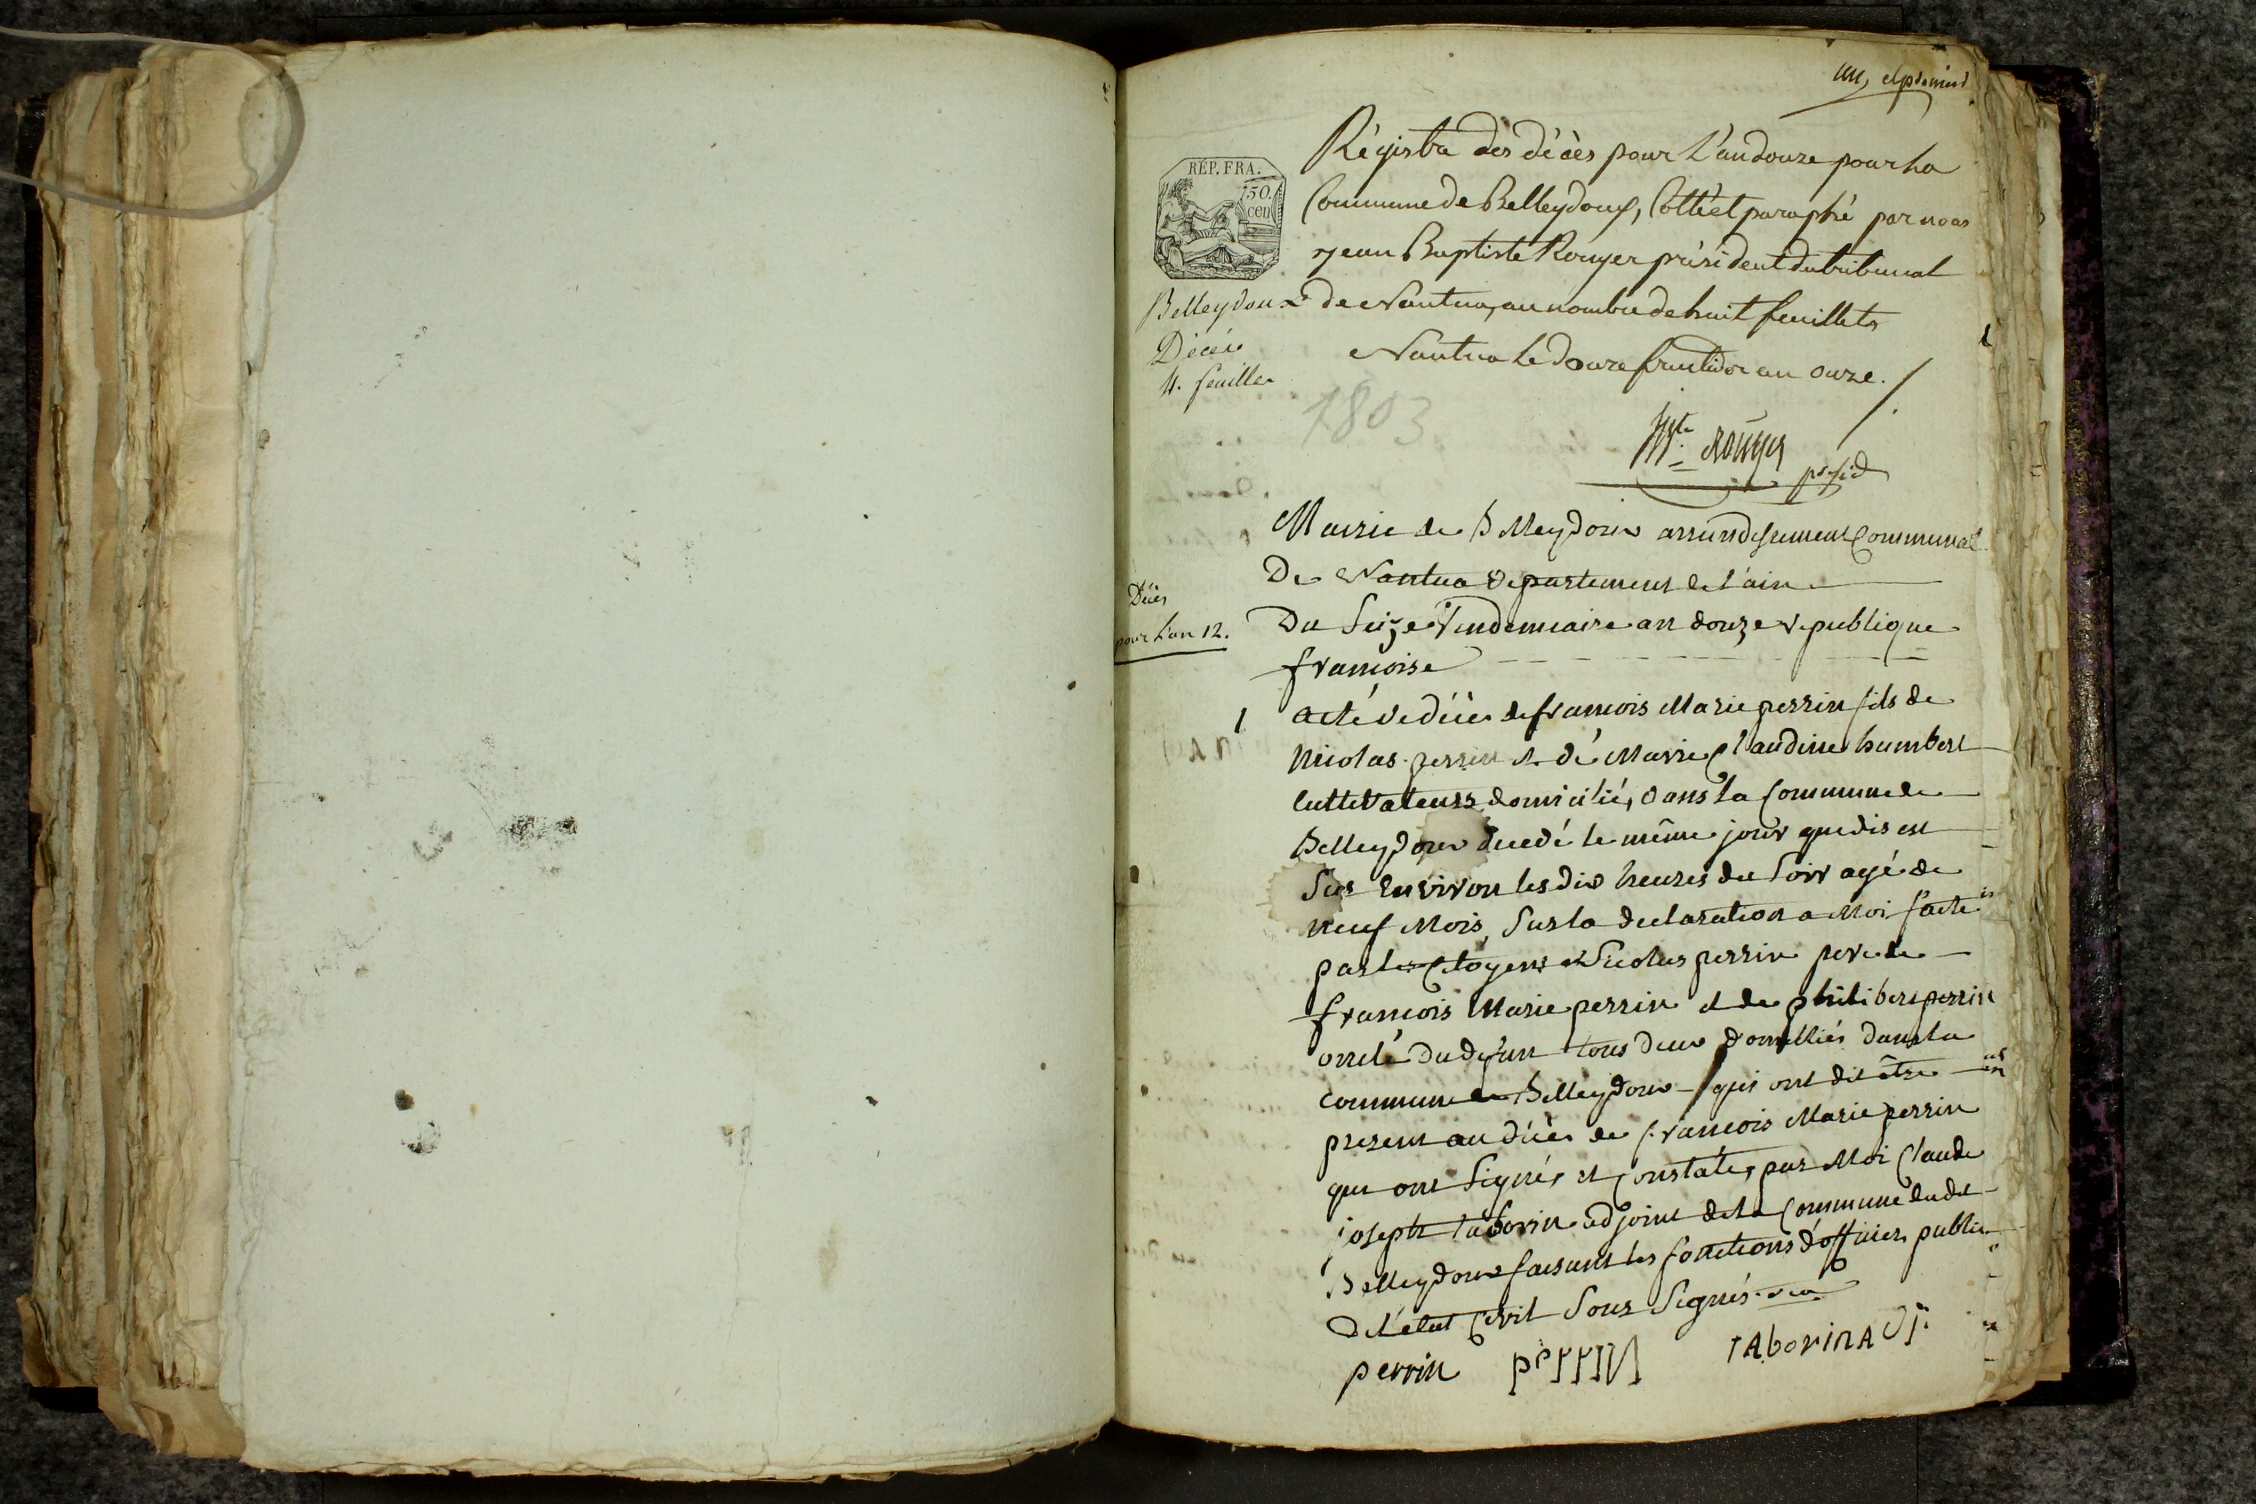 un et premier
Régistre des décès pour L'an douze pour La
Commune de Belleydoux, Cotté et paraphé par nous
jean Baptiste Rouyer président du tribunal
de Nantua, au nombre de huit feuillets
Nantua Le douze fructidor an onze.
REP. FRA.
50.
cen
Belleydoux
Décès
4. feuilles
1803
Rouyer
présid
Mairie de Belleydoux arrundissement Communal
De Nantua departement de l'ain
Décès
pour L'an 12.
Du Seize Vendemiaire an douze republique
francoise
1 acte de décès de francois Marie perrin fils de
Nicolas perrin et de Marie Claudine humbert
Cultivateurs domicilié, dans la Commune de
Belleydoux decedé le même jour que dis est
Sus Environ les dix heures du Soir agé de
neuf Mois, Sur la declaration a Moi faite
par les Citoyens Nicolas perrin pere de
francois Marie perrin et de philibert perrin
oncle du defun tous deux domilliés dans la
commune de Belleydoux qui ont dit être
present au décès de francois Marie perrin
qui ont Signé, et Constaté, par Moi Claude
joseph taborin adjoint de la Commune dudit
Belleydoux faisant les fonctions d'officier public
de l'etat Civil Sous Signés
perrin perrin taborin adj.